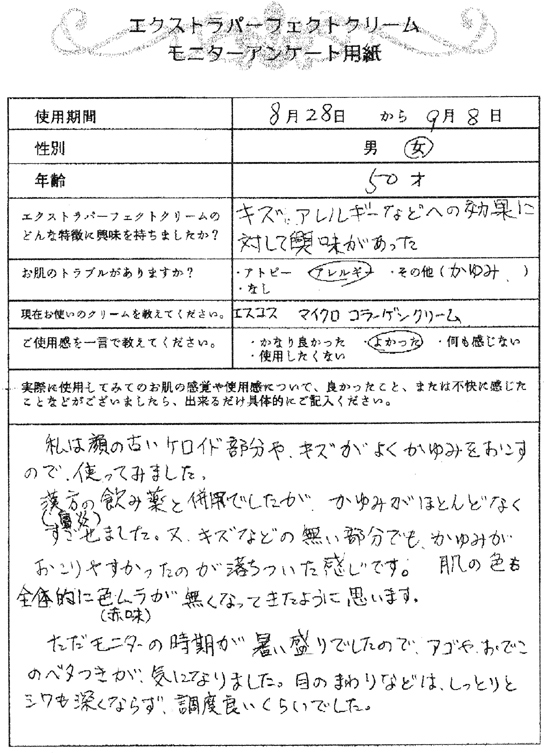 エクストラパーフェクトクリーム
モニターアンケート用紙
使用期間 8月28日 から 9月8日
性別 男 女
年齢 50才
エクストラパーフェクトクリームの
どんな特徴に興味を持ちましたか?
キズ、アレルギーなどへの効果に
対して興味があった
お肌のトラブルがありますか?
・アトピー ・アレルギー ・その他(かゆみ )
・なし
現在お使いのクリームを教えてください。 エスコス マイクロコラーゲンクリーム
ご使用感を一言で教えてください。
・かなり良かった ・よかった ・何も感じない
・使用したくない
実際に使用してみてのお肌の感覚や使用感について、良かったこと、または不快に感じた
ことなどがございましたら、出来るだけ具体的にご記入ください。
私は顔の古いケロイド部分や、キズがよくかゆみをおこす
ので、使ってみました。
漢方の飲み薬と併用でしたが、かゆみがほとんどなく
(鼻炎)
すごせました。又、キズなどの無い部分でも、かゆみが
おこりやすかったのが落ちついた感じです。 肌の色も
全体的に色ムラが無くなってきたように思います。
(赤味)
ただモニターの時期が暑い盛りでしたので、アゴや、おでこ
のベタつきが、気になりました。目のまわりなどは、しっとりと
シワも深くならず、調度良いくらいでした。